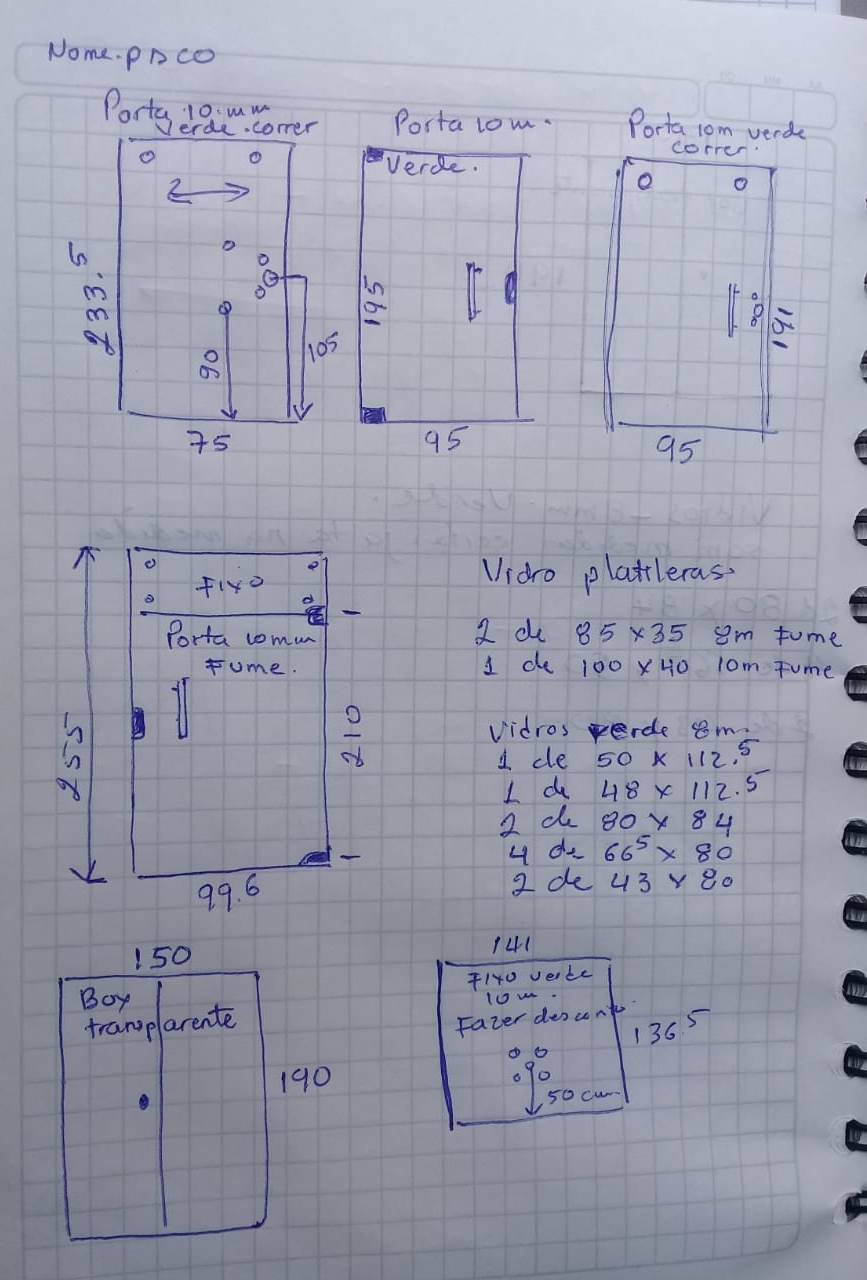 Nome. PACO
Porta 10 mm
Verde correr
233.5
90
105
75
Porta 10 m.
Verde.
195
95
Porta 10m verde
correr.
191
95
Fixo
Porta 10mm
Fume.
255
210
99.6
Vidro platileras
2 de 85 x 35 8m Fume
1 de 100 x 40 10m Fume
Vidros verde 8m.
1 de 50 x 112.5
1 de 48 x 112.5
2 de 80 x 84
4 de 66⁵ x 80
2 de 43 x 80
150
Box
transparente
190
141
Fixo verde
10 m.
Fazer desconto.
136.5
50 cm